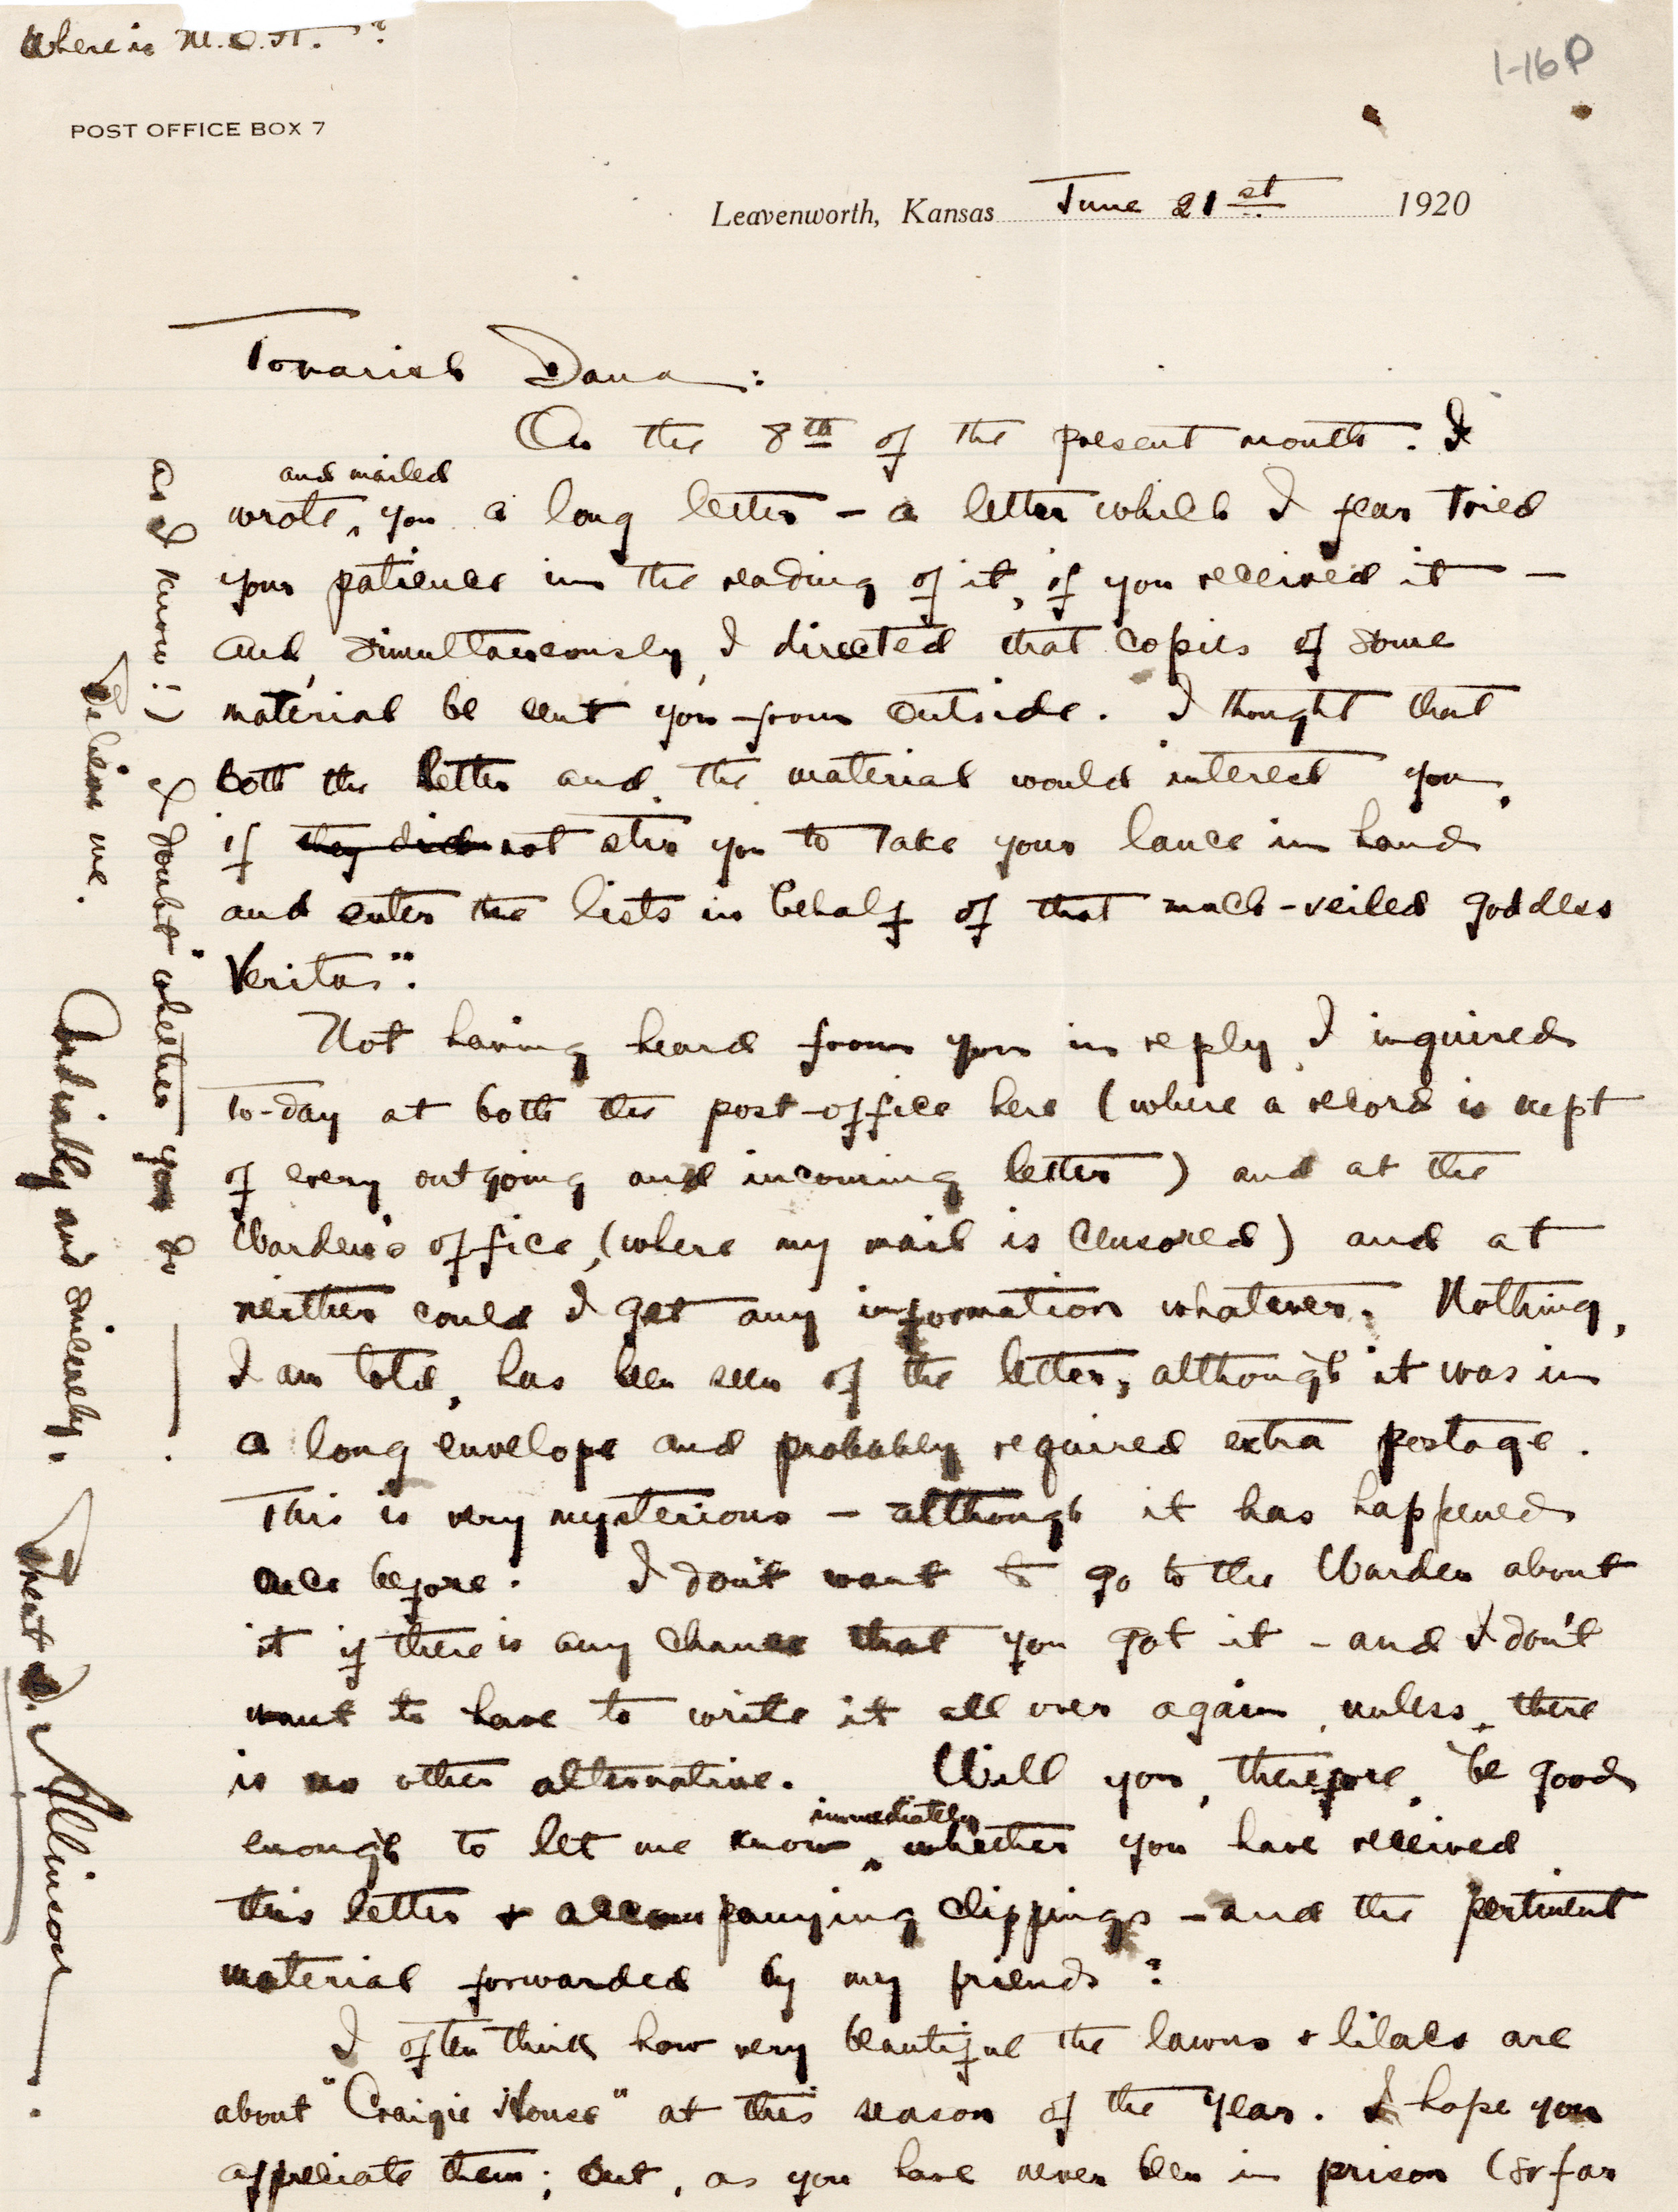 Where is M.O.H. ?
1-16 P
POST OFFICE BOX 7
Leavenworth, Kansas June 21st 1920
Tovarish Dana:
On the 8th of the present month. I
and mailed
wrote, you a long letter - a letter which I fear tried
your patience in the reading of it, if you received it -
and, simultaneously, I directed that copies of some
material be sent you from outside. I thought that
both the letter and the material would interest you,
if they did not stir you to take your lance in hand
and enter the lists in behalf of that much-veiled goddess
Veritas".
Not having heard from you in reply, I inquired
to-day at both the post-office here (where a record is kept
of every outgoing and incoming letter) and at the
Warden's office, (where my mail is censored) and at
neither could I get any information whatever. Nothing,
I am told, has been seen of the letter, although it was in
a long envelope and probably required extra postage.
This is very mysterious - although it has happened
once before. I don't want to go to the Warden about
it if there is any chance that you got it - and I don't
want to have to write it all over again, unless, there
is no other alternative. Will you, therefore, be good
immediately
enough to let me know whether you have received
this letter & accompanying clippings - and the pertinent
material forwarded by my friends?
I often think how very beautiful the lawns & lilacs are
about "Craigie House" at this season of the year. I hope you
appreciate them; but, as you have never been in prison (so far
as I know!) I doubt whether you do.
Believe me.
Cordially and sincerely,
Brent D. Allinson.